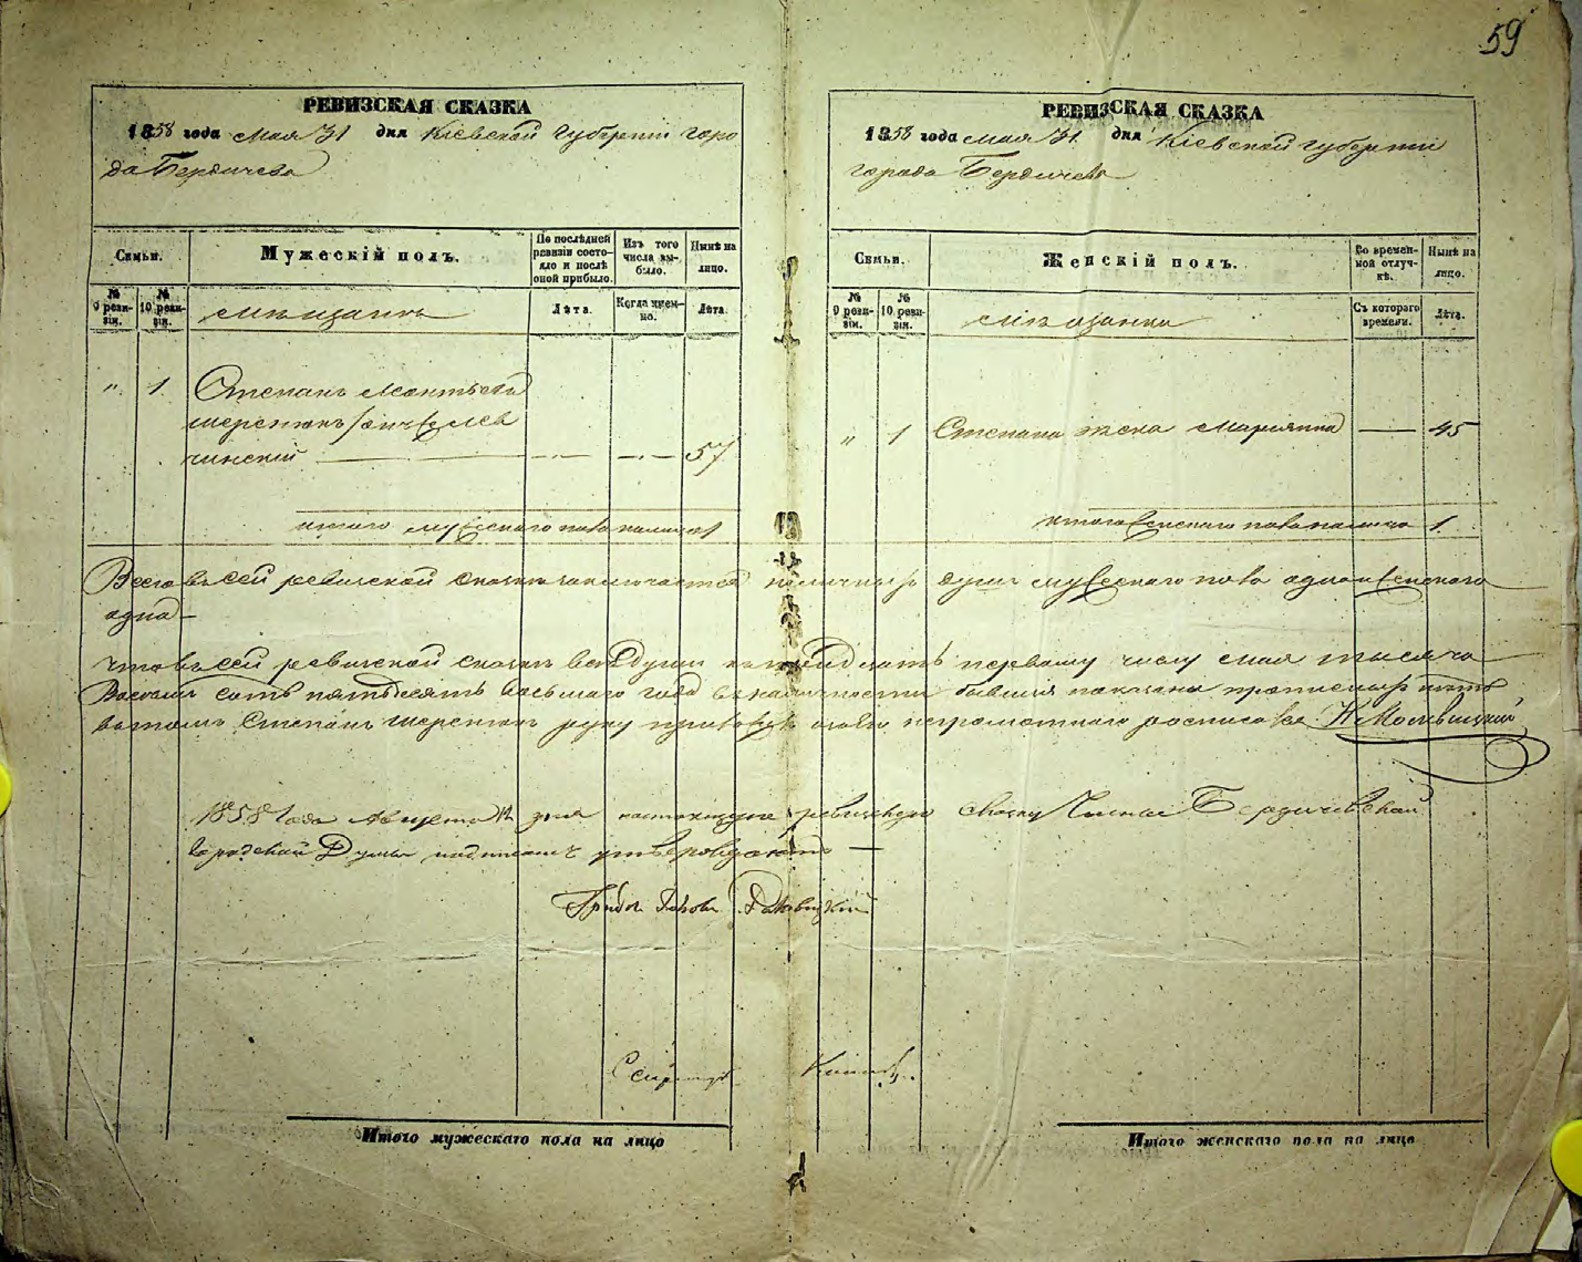 59
РЕВИЗСКАЯ СКАЗКА
1858 года Мая 31 дня Кіевской Губерніи горо
да Бердичева
Семьи.
Мужескій полъ.
По послѣдней ревизіи состояло и послѣ оной прибыло.
Изъ того числа выбыло.
Нынѣ на лицо.
№ 9 ревизіи.
№ 10 ревизіи.
мѣщанъ
Лѣта.
Когда именно.
Лѣта.
" 1 Степанъ Леонтьевъ
Шеренюкъ
чинскій — — 57
итого мужескаго пола налицо 1
РЕВИЗСКАЯ СКАЗКА
1858 года мая 31 дня Кіевской губерніи
города Бердичева
Семьи.
Женскій полъ.
Во временной отлучкѣ.
Нынѣ на лицо.
№ 9 ревизіи.
№ 10 ревизіи.
мѣщанки
Съ котораго времени.
Лѣта.
" 1 Степана жена Маріянна — 45
итого женскаго пола налицо 1
Всего въ сей ревизской сказкѣ заключается наличныхъ душъ мужескаго пола одна женскаго
одна —
Что въ сей ревизской сказкѣ всѣ души къ тридцать первому числу мая тысяча
восемь сотъ пятьдесятъ восьмаго года въ наличности бывшія показаны
въ томъ Степанъ Шеренюкъ руку неграмотнаго росписался К Молевицкій
1858 года Августа 12 дня настоящую ревизскую сказку Члены Бердичевской
Городской Думы подписомъ утверждаютъ —
Итого мужескаго пола на лицо
Итого женскаго пола на лицо